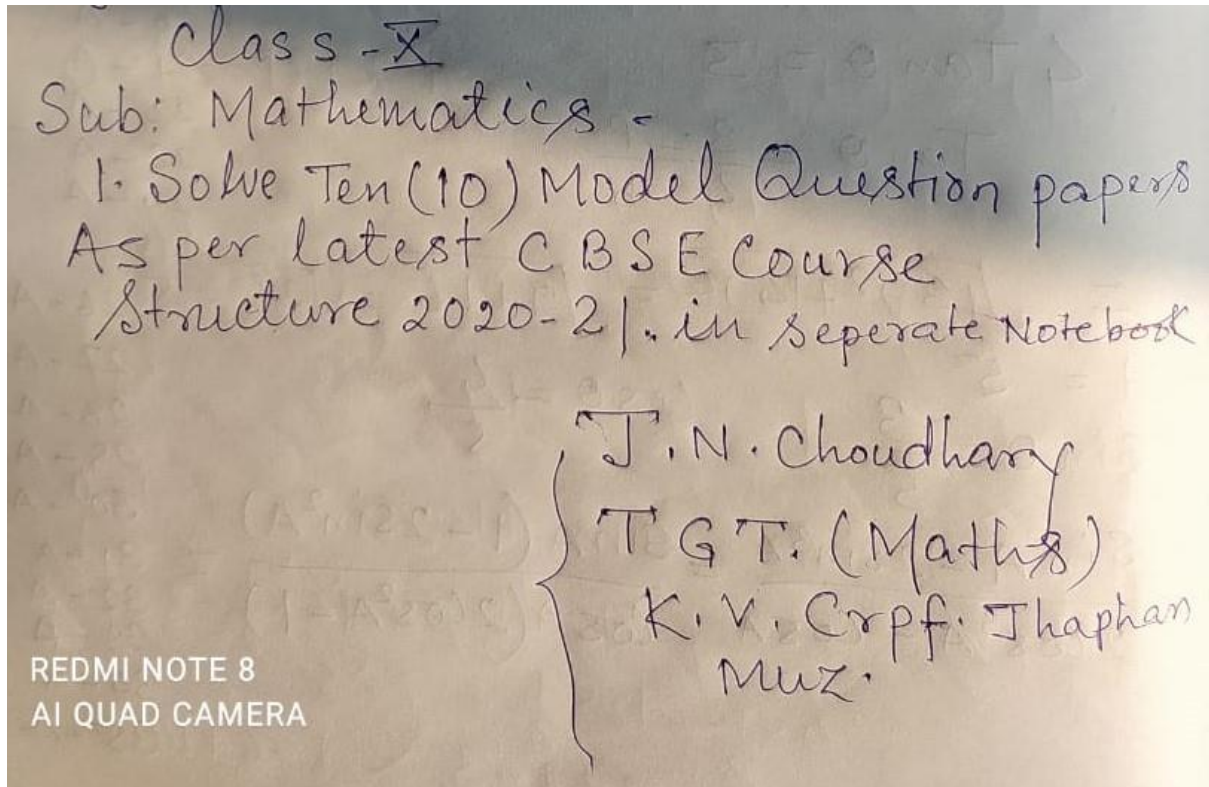 Class - X
Sub: Mathematics -
1. Solve Ten (10) Model Question papers
As per latest CBSE Course
Structure 2020-21. in seperate Notebook
J.N. Choudhary
TGT. (Maths)
K.V. Crpf. Jhaphan
Muz.
REDMI NOTE 8
AI QUAD CAMERA